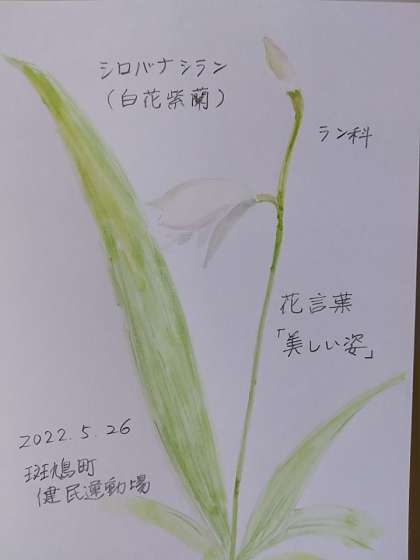 シロバナシラン
(白花紫蘭)
ラン科
花言葉
「美しい姿」
2022.5.26
斑鳩町
健民運動場